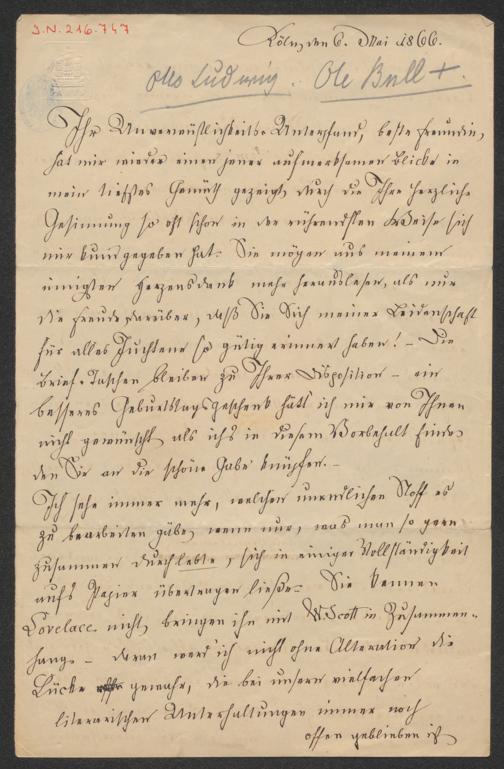 J.N. 216.747
Köln, den 6. Mai 1866.
Otto Ludwig. Ole Bull +.
Ihr Unverwüstlichkeits-Unterpfand, beste Freundin,
hat mir wieder einen jener aufmerksamen Blicke in
mein tiefstes Gemüth gezeigt, durch die Ihre herzliche
Gesinnung so oft schon in der rührendsten Weise sich
mir kund gegeben hat. Sie mögen aus meinem
innigsten Herzensdank mehr herauslesen, als nur
die Freude darüber, daß Sie Sich meiner Leidenschaft
für alles Juchtene so gütig erinnert haben! – Die
Brief-Taschen bleiben zu Ihrer Disposition – ein
besseres Geburtstagsgeschenk hätt' ich mir von Ihnen
nicht gewünscht, als ich's in diesem Vorbehalt finde,
den Sie an die schöne Gabe knüpfen. –
Ich sehe immer mehr, welchen unendlichen Stoff es
zu bearbeiten gäbe, wenn nur, was man so gern
zusammen durchlebte, sich in einiger Vollständigkeit
auf's Papier übertragen ließe. Sie kennen
Lovelace nicht, bringen ihn mit W. Scott in Zusammen-
hang – daran werd' ich nicht ohne Alteration die
Lücke gewahr, die bei unsern vielfachen
literarischen Unterhaltungen immer noch
offen geblieben ist